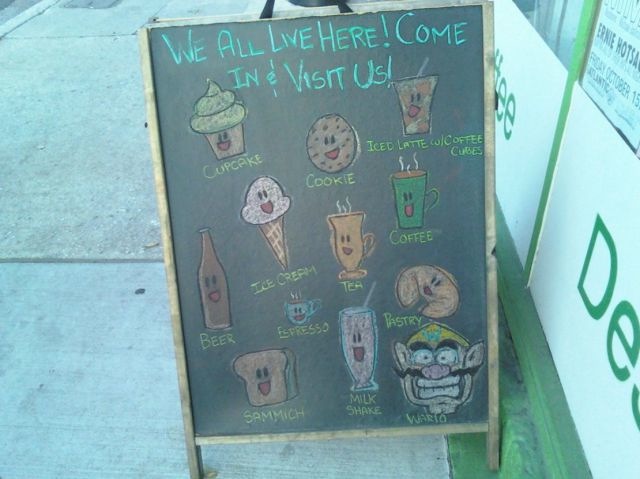 WE ALL LIVE HERE! COME
IN & VISIT US!
CUPCAKE
COOKIE
ICED LATTE W/COFFEE
CUBES
ICE CREAM
TEA
COFFEE
BEER
ESPRESSO
PASTRY
SAMMICH
MILK
SHAKE
WARIO
ERNIE HOTSA
FRIDAY OCTOBER 15
ffee
De